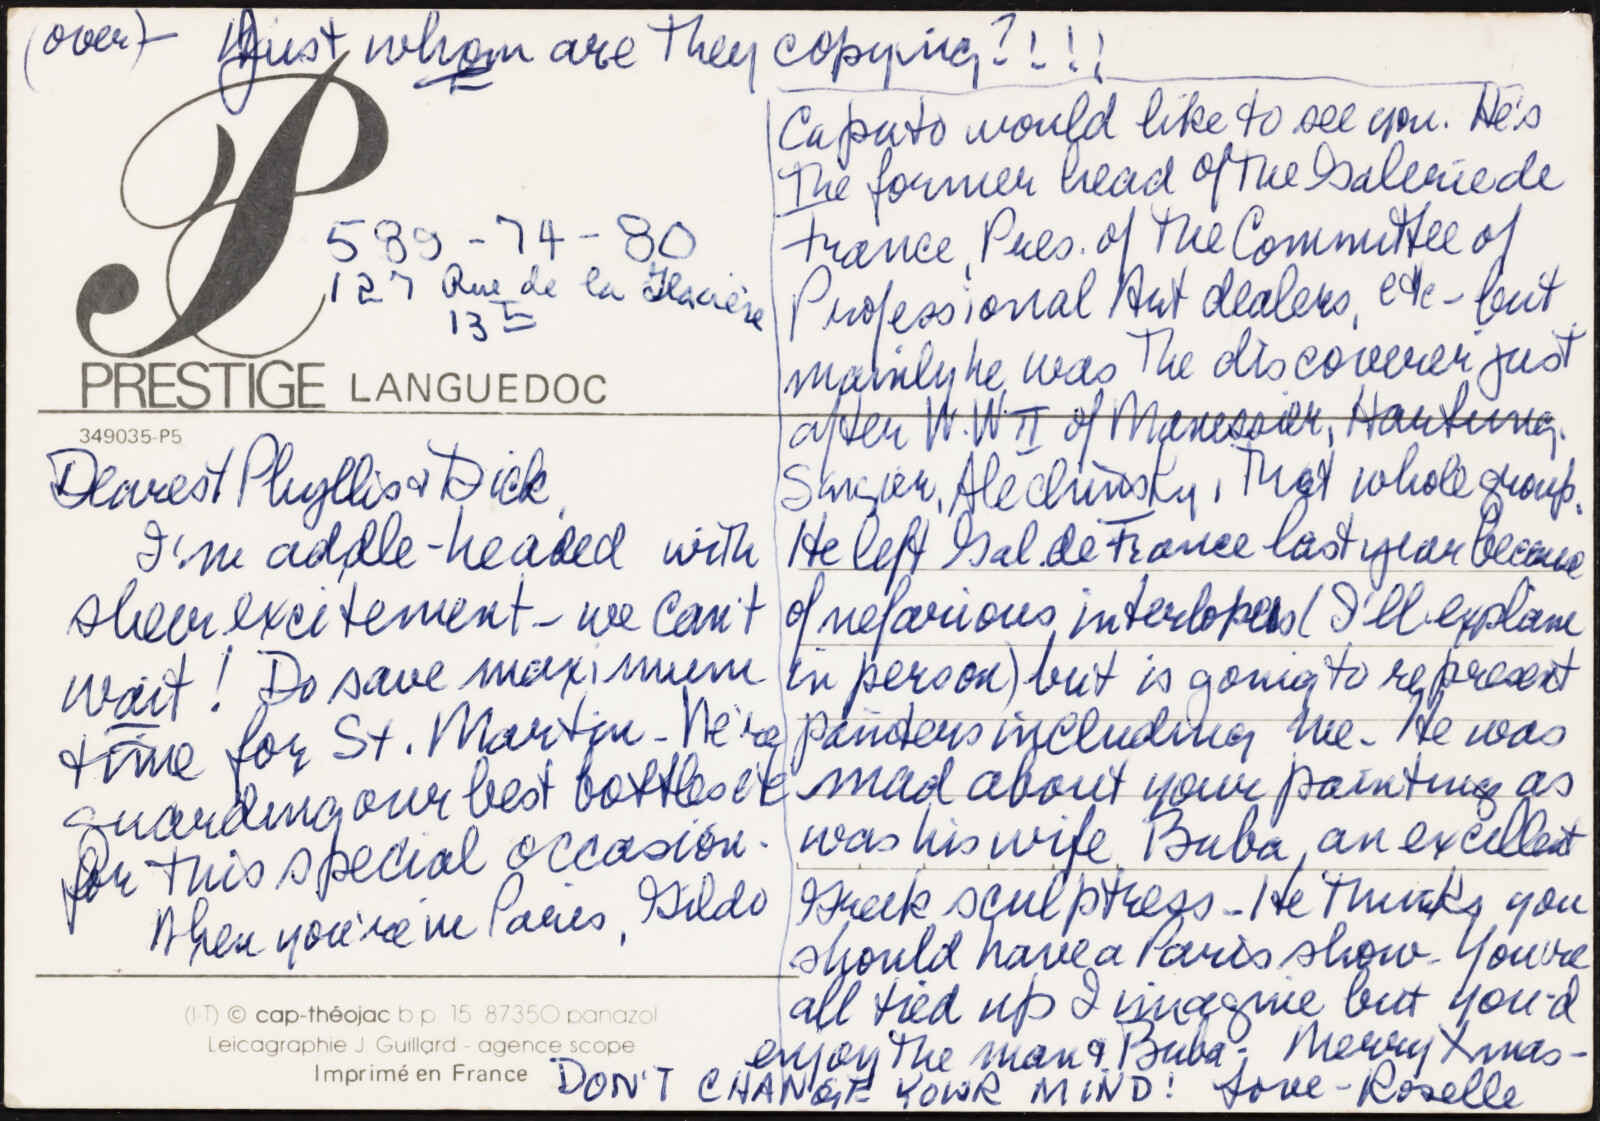 (over) - Just whom are they copying?!!!
589-74-80
127 Rue de la Glacière
13E
PRESTIGE LANGUEDOC
349035-P5
Dearest Phyllis & Dick,
I'm addle-headed with
sheer excitement - we can't
wait! Do save maximum
time for St. Martin - We're
guarding our best bottles etc
for this special occasion.
When you're in Paris, Gildo
Caputo would like to see you. He's
The former head of the Galerie de
France, Pres. of the Committee of
Professional Art dealers, etc - but
mainly he was the discoverer just
after W.W II of Manessier, Hartung,
Singier, Alechinsky, that whole group.
He left Gal. de France last year because
of nefarious interlopers (I'll explain
in person) but is going to represent
painters including me - He was
mad about your painting as
was his wife Buba, an excellent
Greek sculptress - He thinks you
should have a Paris show - You're
all tied up I imagine but you'd
enjoy the man & Buba - Merry Xmas -
DON'T CHANGE YOUR MIND! Love - Roselle
(I-T) © cap-théojac b.p. 15 87350 panazol
Leicagraphie J. Guillard - agence scope
Imprimé en France